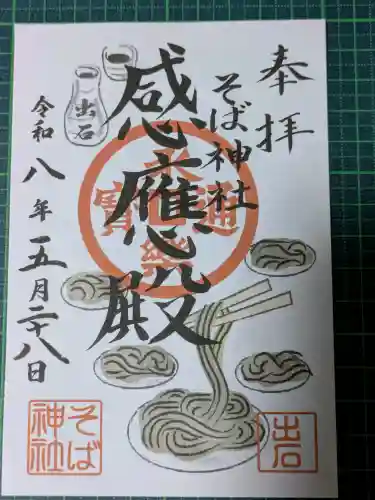 奉拝
そば神社
感應殿
永樂通寳
令和八年五月二十八日
出石
そば神社
出石